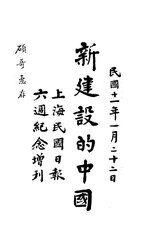 民國十一年一月二十二日
新建設的中國
上海民國日報
六週紀念增刊
碩哥惠存